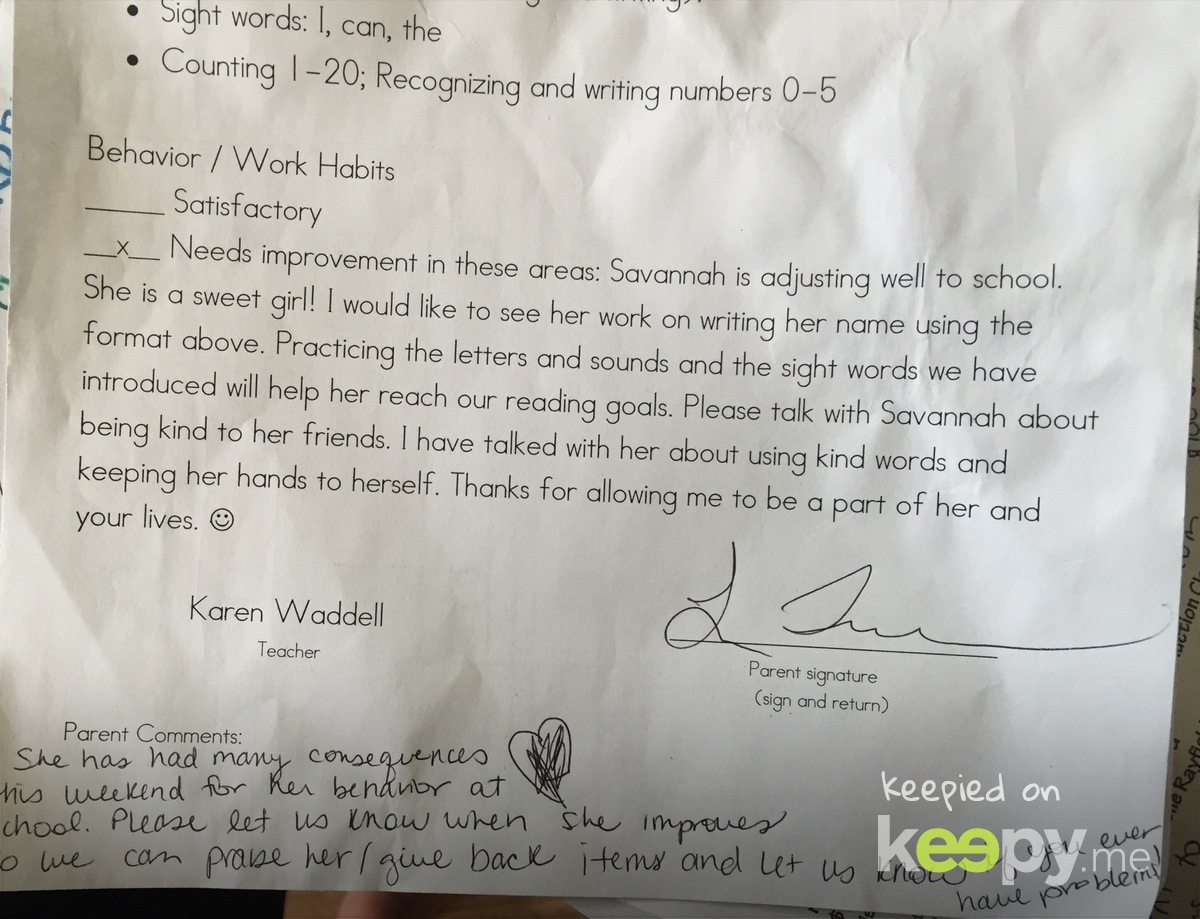 • Sight words: I, can, the
• Counting 1-20; Recognizing and writing numbers 0-5
Behavior / Work Habits
_____ Satisfactory
__x__ Needs improvement in these areas: Savannah is adjusting well to school.
She is a sweet girl! I would like to see her work on writing her name using the
format above. Practicing the letters and sounds and the sight words we have
introduced will help her reach our reading goals. Please talk with Savannah about
being kind to her friends. I have talked with her about using kind words and
keeping her hands to herself. Thanks for allowing me to be a part of her and
your lives. ☺
Karen Waddell
Teacher
Parent signature
(sign and return)
Parent Comments:
She has had many consequences
his weekend for her behavior at
chool. Please let us know when she improves
o we can praise her/give back items and let us know if you ever
have problems!
keepied on
keepy.me